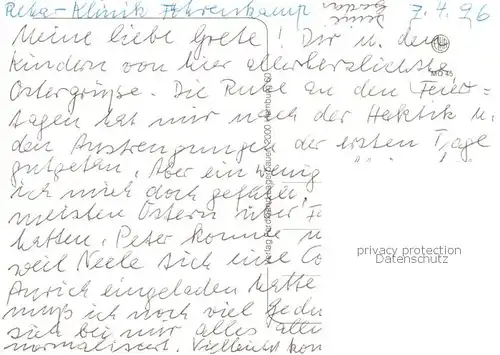 Reha-Klinik Fohrenkamp 7.4.96
Meine liebe Grete! Dir u. den
Kindern von hier allerherzlichste
Ostergrüße. Die Ruhe an den Feier-
tagen hat mir nach der Hektik u.
den Anstrengungen der ersten Tage
gutgetan. Aber ein wenig
ich mich doch gefühlt,
meisten Ostern über
hatten. Peter konnte
weil Neele sich eine
Aurich eingeladen hatte
muß ich noch viel Gedu
sich bei mir alles
normalisiert. Vielleicht kon
MD 45
privacy protection
Datenschutz